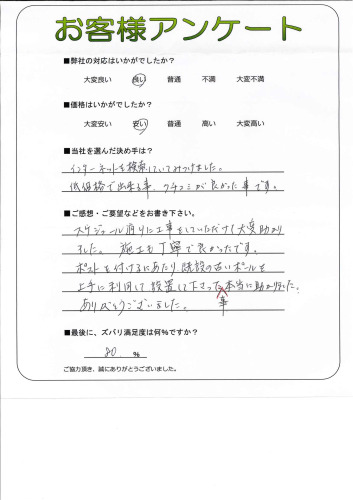 お客様アンケート
■弊社の対応はいかがでしたか?
大変良い 良い 普通 不満 大変不満
■価格はいかがでしたか?
大変安い 安い 普通 高い 大変高い
■当社を選んだ決め手は?
インターネットを検索していてみつけました。
低価格で出来る事、クチコミが良かった事です。
■ご感想・ご要望などをお書き下さい。
スケジュール通りに工事をしていただけて大変助かり
ました。施工も丁寧で良かったです。
ポストを付けるにあたり、既設の古いポールを
上手に利用して設置して下さった事本当に助かりました。
ありがとうございました。
■最後に、ズバリ満足度は何%ですか?
80 %
ご協力頂き、誠にありがとうございました。